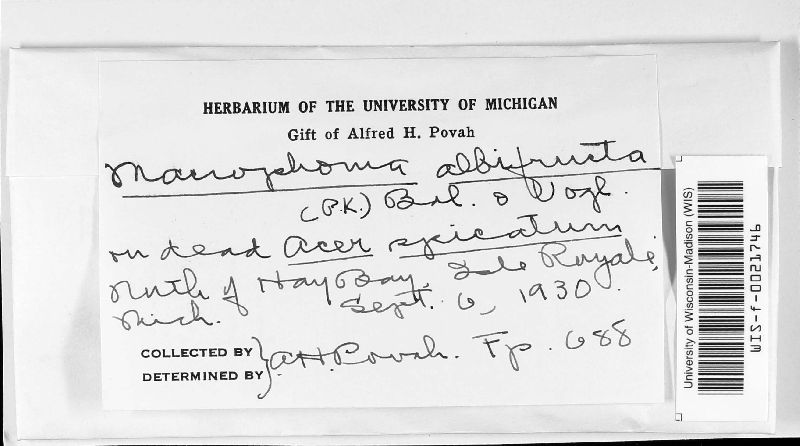 HERBARIUM OF THE UNIVERSITY OF MICHIGAN
Gift of Alfred H. Povah
Macrophoma albifructa
(P.K.) Berl. & Vogl.
on dead Acer spicatum
North of Hay Bay, Isle Royale,
Mich. Sept. 6, 1930.
COLLECTED BY
DETERMINED BY
A.H. Povah. Fp. 688
University of Wisconsin-Madison (WIS)
WIS-f-0021746